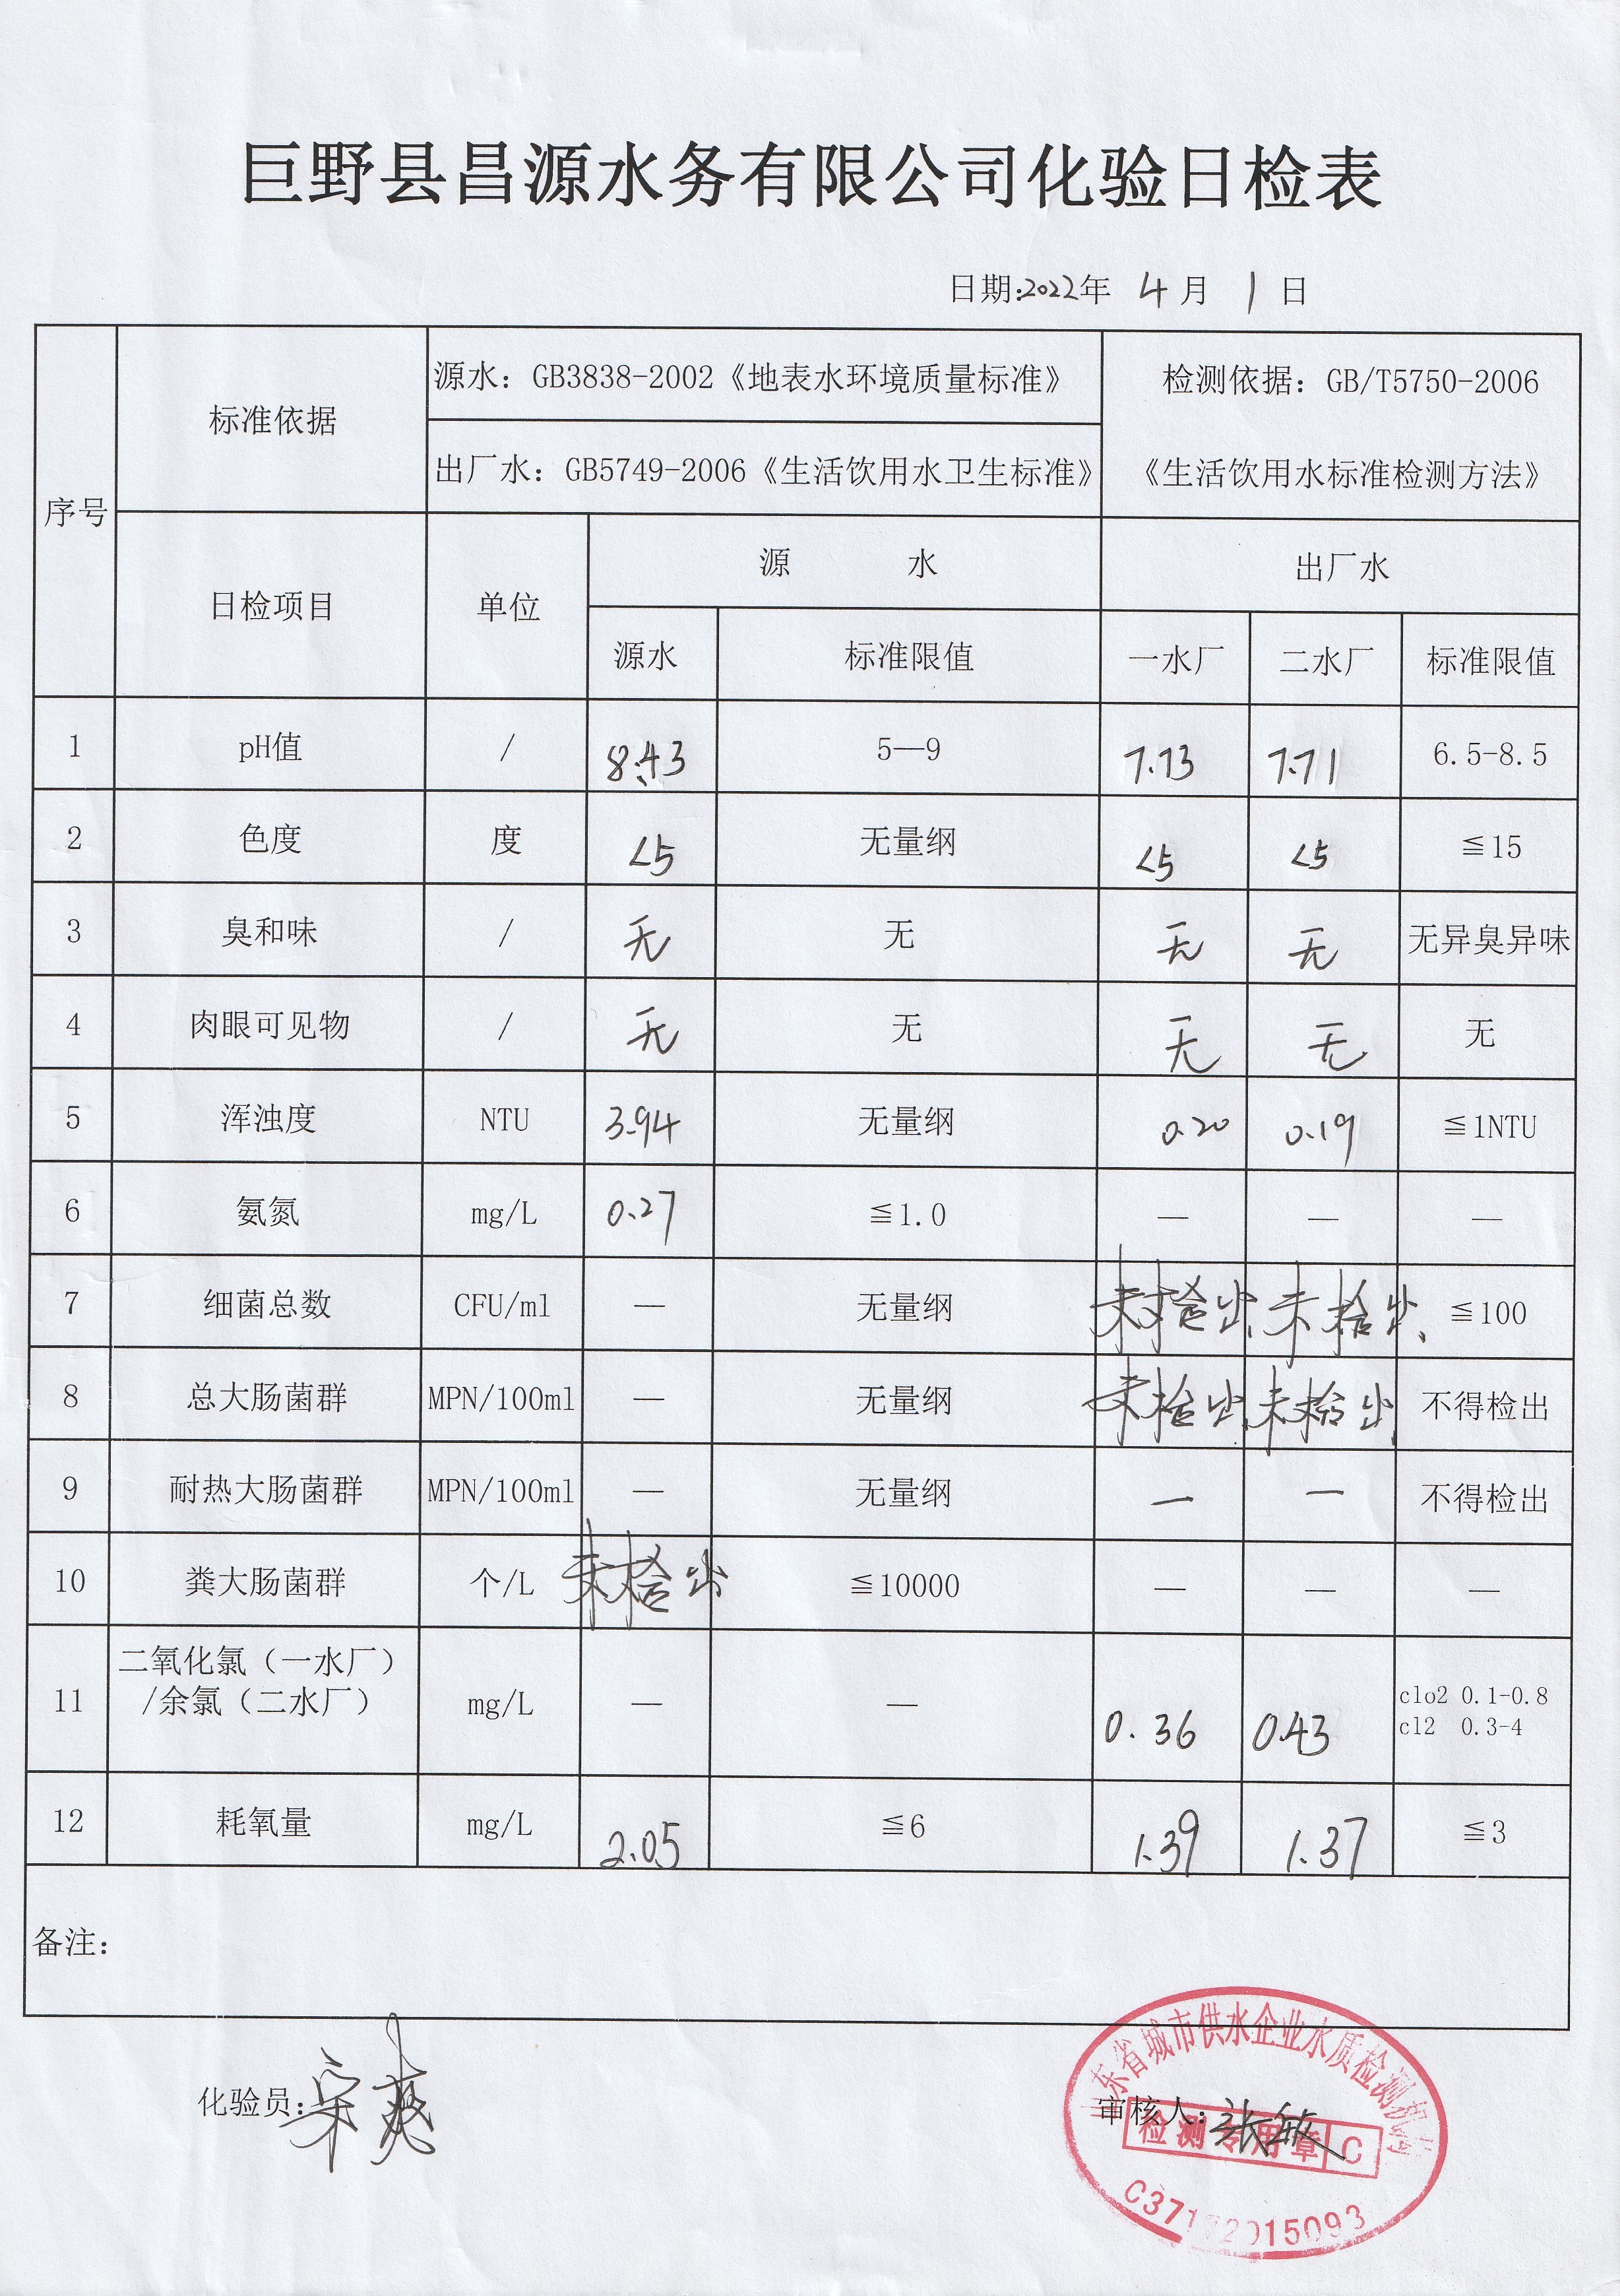 巨野县昌源水务有限公司化验日检表
日期:2022年 4 月 1 日
序号 标准依据 源水：GB3838-2002《地表水环境质量标准》 检测依据：GB/T5750-2006
出厂水：GB5749-2006《生活饮用水卫生标准》 《生活饮用水标准检测方法》
日检项目 单位 源 水 出厂水
源水 标准限值 一水厂 二水厂 标准限值
1 pH值 / 8.43 5—9 7.73 7.71 6.5-8.5
2 色度 度 <5 无量纲 <5 <5 ≦15
3 臭和味 / 无 无 无 无 无异臭异味
4 肉眼可见物 / 无 无 无 无 无
5 浑浊度 NTU 3.94 无量纲 0.20 0.19 ≦1NTU
6 氨氮 mg/L 0.27 ≦1.0 — — —
7 细菌总数 CFU/ml — 无量纲 未检出 未检出 ≦100
8 总大肠菌群 MPN/100ml — 无量纲 未检出 未检出 不得检出
9 耐热大肠菌群 MPN/100ml — 无量纲 — — 不得检出
10 粪大肠菌群 个/L 未检出 ≦10000 — — —
二氧化氯（一水厂）
11 /余氯（二水厂） mg/L — — 0.36 0.43 clo2 0.1-0.8
cl2 0.3-4
12 耗氧量 mg/L 2.05 ≦6 1.39 1.37 ≦3
备注：
化验员：宋爽 审核人：张敏
山东省城市供水企业水质检测机构
检测专用章 C